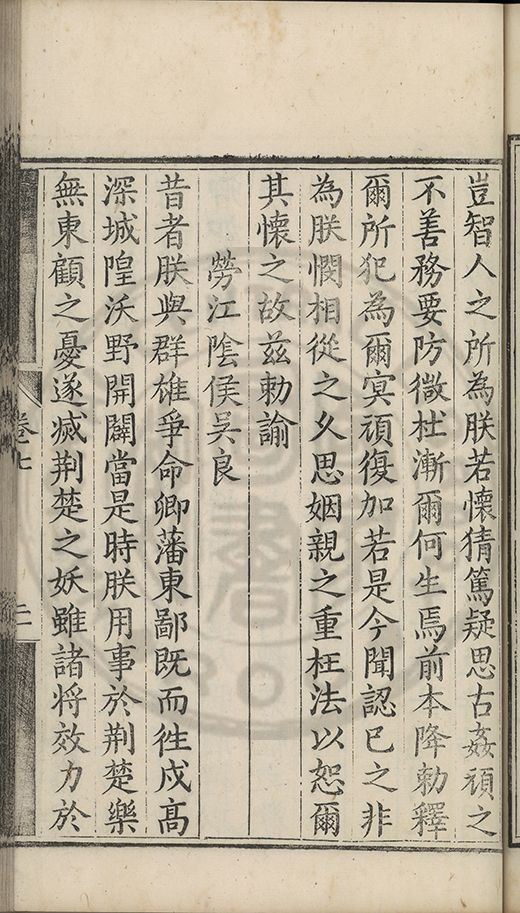 豈智人之所為朕若懷猜篤疑思古姦頑之
不善務要防微杜漸爾何生焉前本降勅釋
爾所犯為爾冥頑復加若是今聞認已之非
為朕憫相從之久思姻親之重枉法以恕爾
其懷之故茲勅諭
勞江陰侯吳良
昔者朕與群雄爭命卿藩東鄙既而徃戍高
深城隍沃野開闢當是時朕用事於荆楚樂
無東顧之憂遂滅荆楚之妖雖諸将效力於
卷七
二